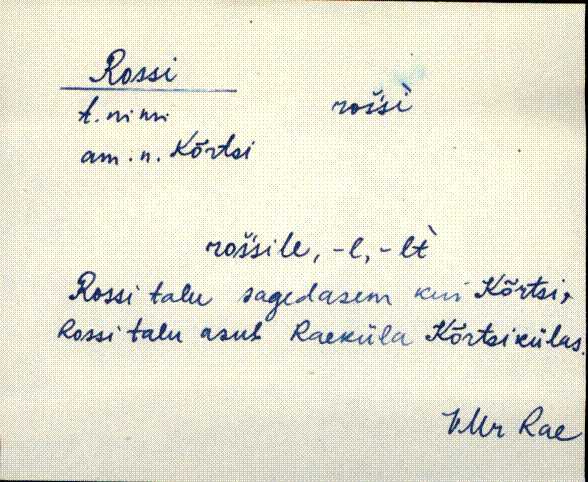 Rossi
rošsì
t. nimi
am. n. Kõrtsi
rošsile, -l, -lt̀
Rossi talu sagedasem kui Kõrtsi,
Rossi talu asub Raeküla Kõrtsikülas.
VMr Rae